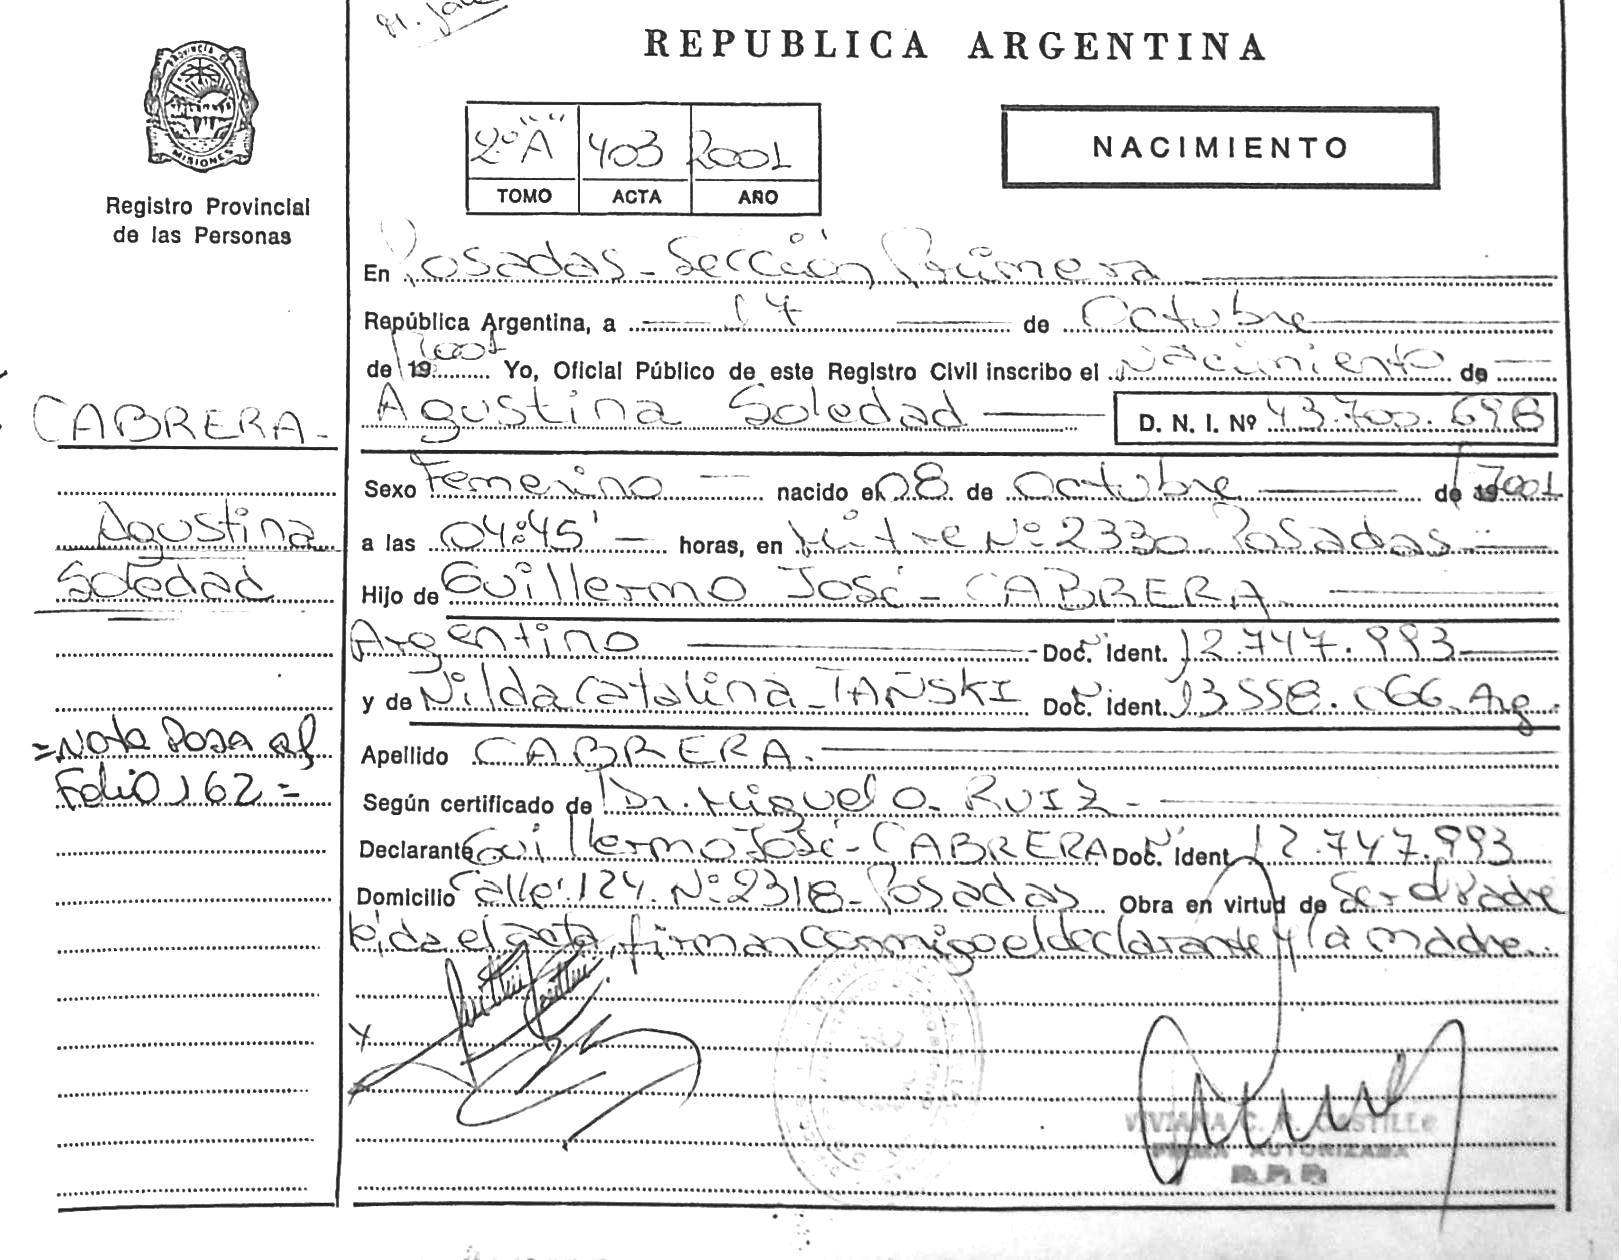 REPUBLICA ARGENTINA
PROVINCIA DE
MISIONES
Registro Provincial
de las Personas
2º "A" 403 2001
TOMO ACTA AÑO
NACIMIENTO
En Posadas - Sección Primera
República Argentina, a 17 de Octubre
de 19 2001 Yo, Oficial Público de este Registro Civil inscribo el Nacimiento de
CABRERA -
Agustina Soledad D. N. I. Nº 43.700.698
Sexo Femenino nacido el 08 de Octubre de 19 2001
Agustina
a las 04:45' horas, en Mitre Nº 2330 Posadas -
Soledad
Hijo de Guillermo José - CABRERA
Argentino Doc. Ident. Nº 12.747.993
y de Nilda Catalina - TAÑSKI Doc. Ident. Nº 13.558.066 Arg.
= Nota Pasa al
Folio 162 =
Apellido CABRERA.
Según certificado de Dr. Miguel O. RUIZ -
Declarante Guillermo José - CABRERA Doc. Ident. Nº 12.747.993
Domicilio Calle: 124. Nº 2318 - Posadas Obra en virtud de Ser el Padre
leída el acta, firman conmigo el declarante y la madre.
X
VIVIANA C. CASTILLO
FIRMA AUTORIZADA